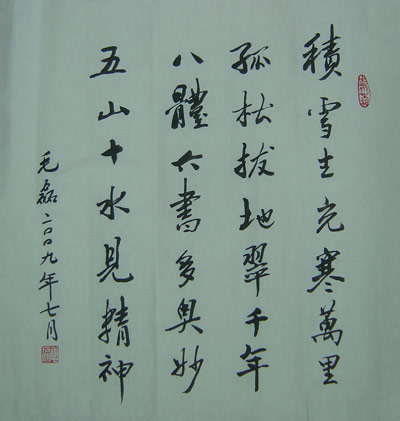 積雪生光寒萬里
孤松拔地翠千年
八體六書多奥妙
五山十水見精神
毛磊二〇〇九年七月